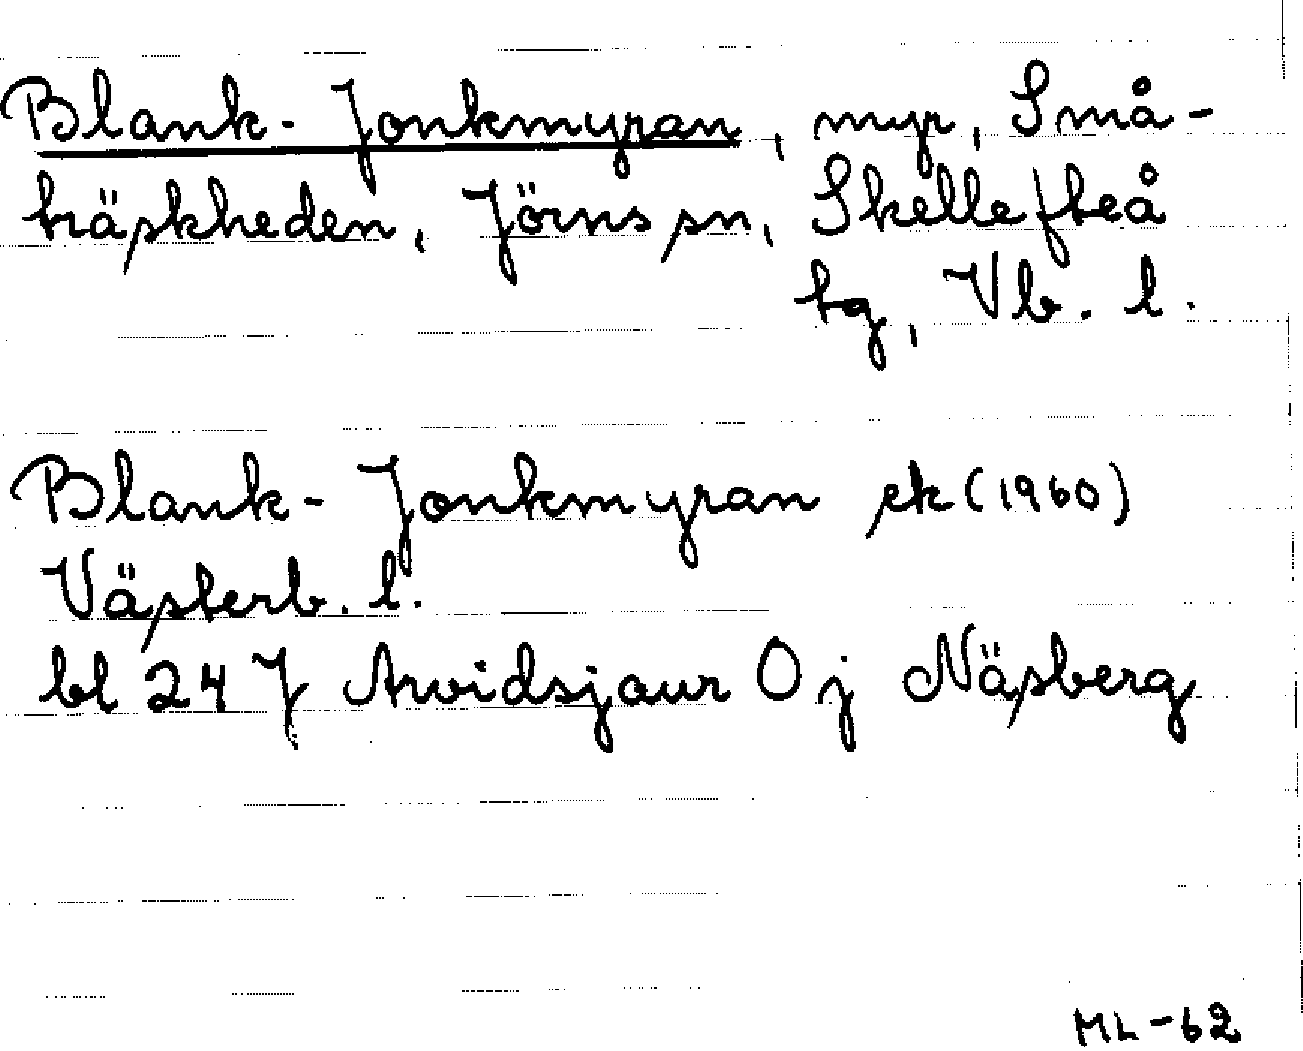 Blank-Jonkmyran, myr, Små-
träskheden, Jörns sn, Skellefteå
tg, Vb. l.
Blank-Jonkmyran ek (1960)
Västerb. l.
bl 24 J Arvidsjaur O j Näsberg
ML-62